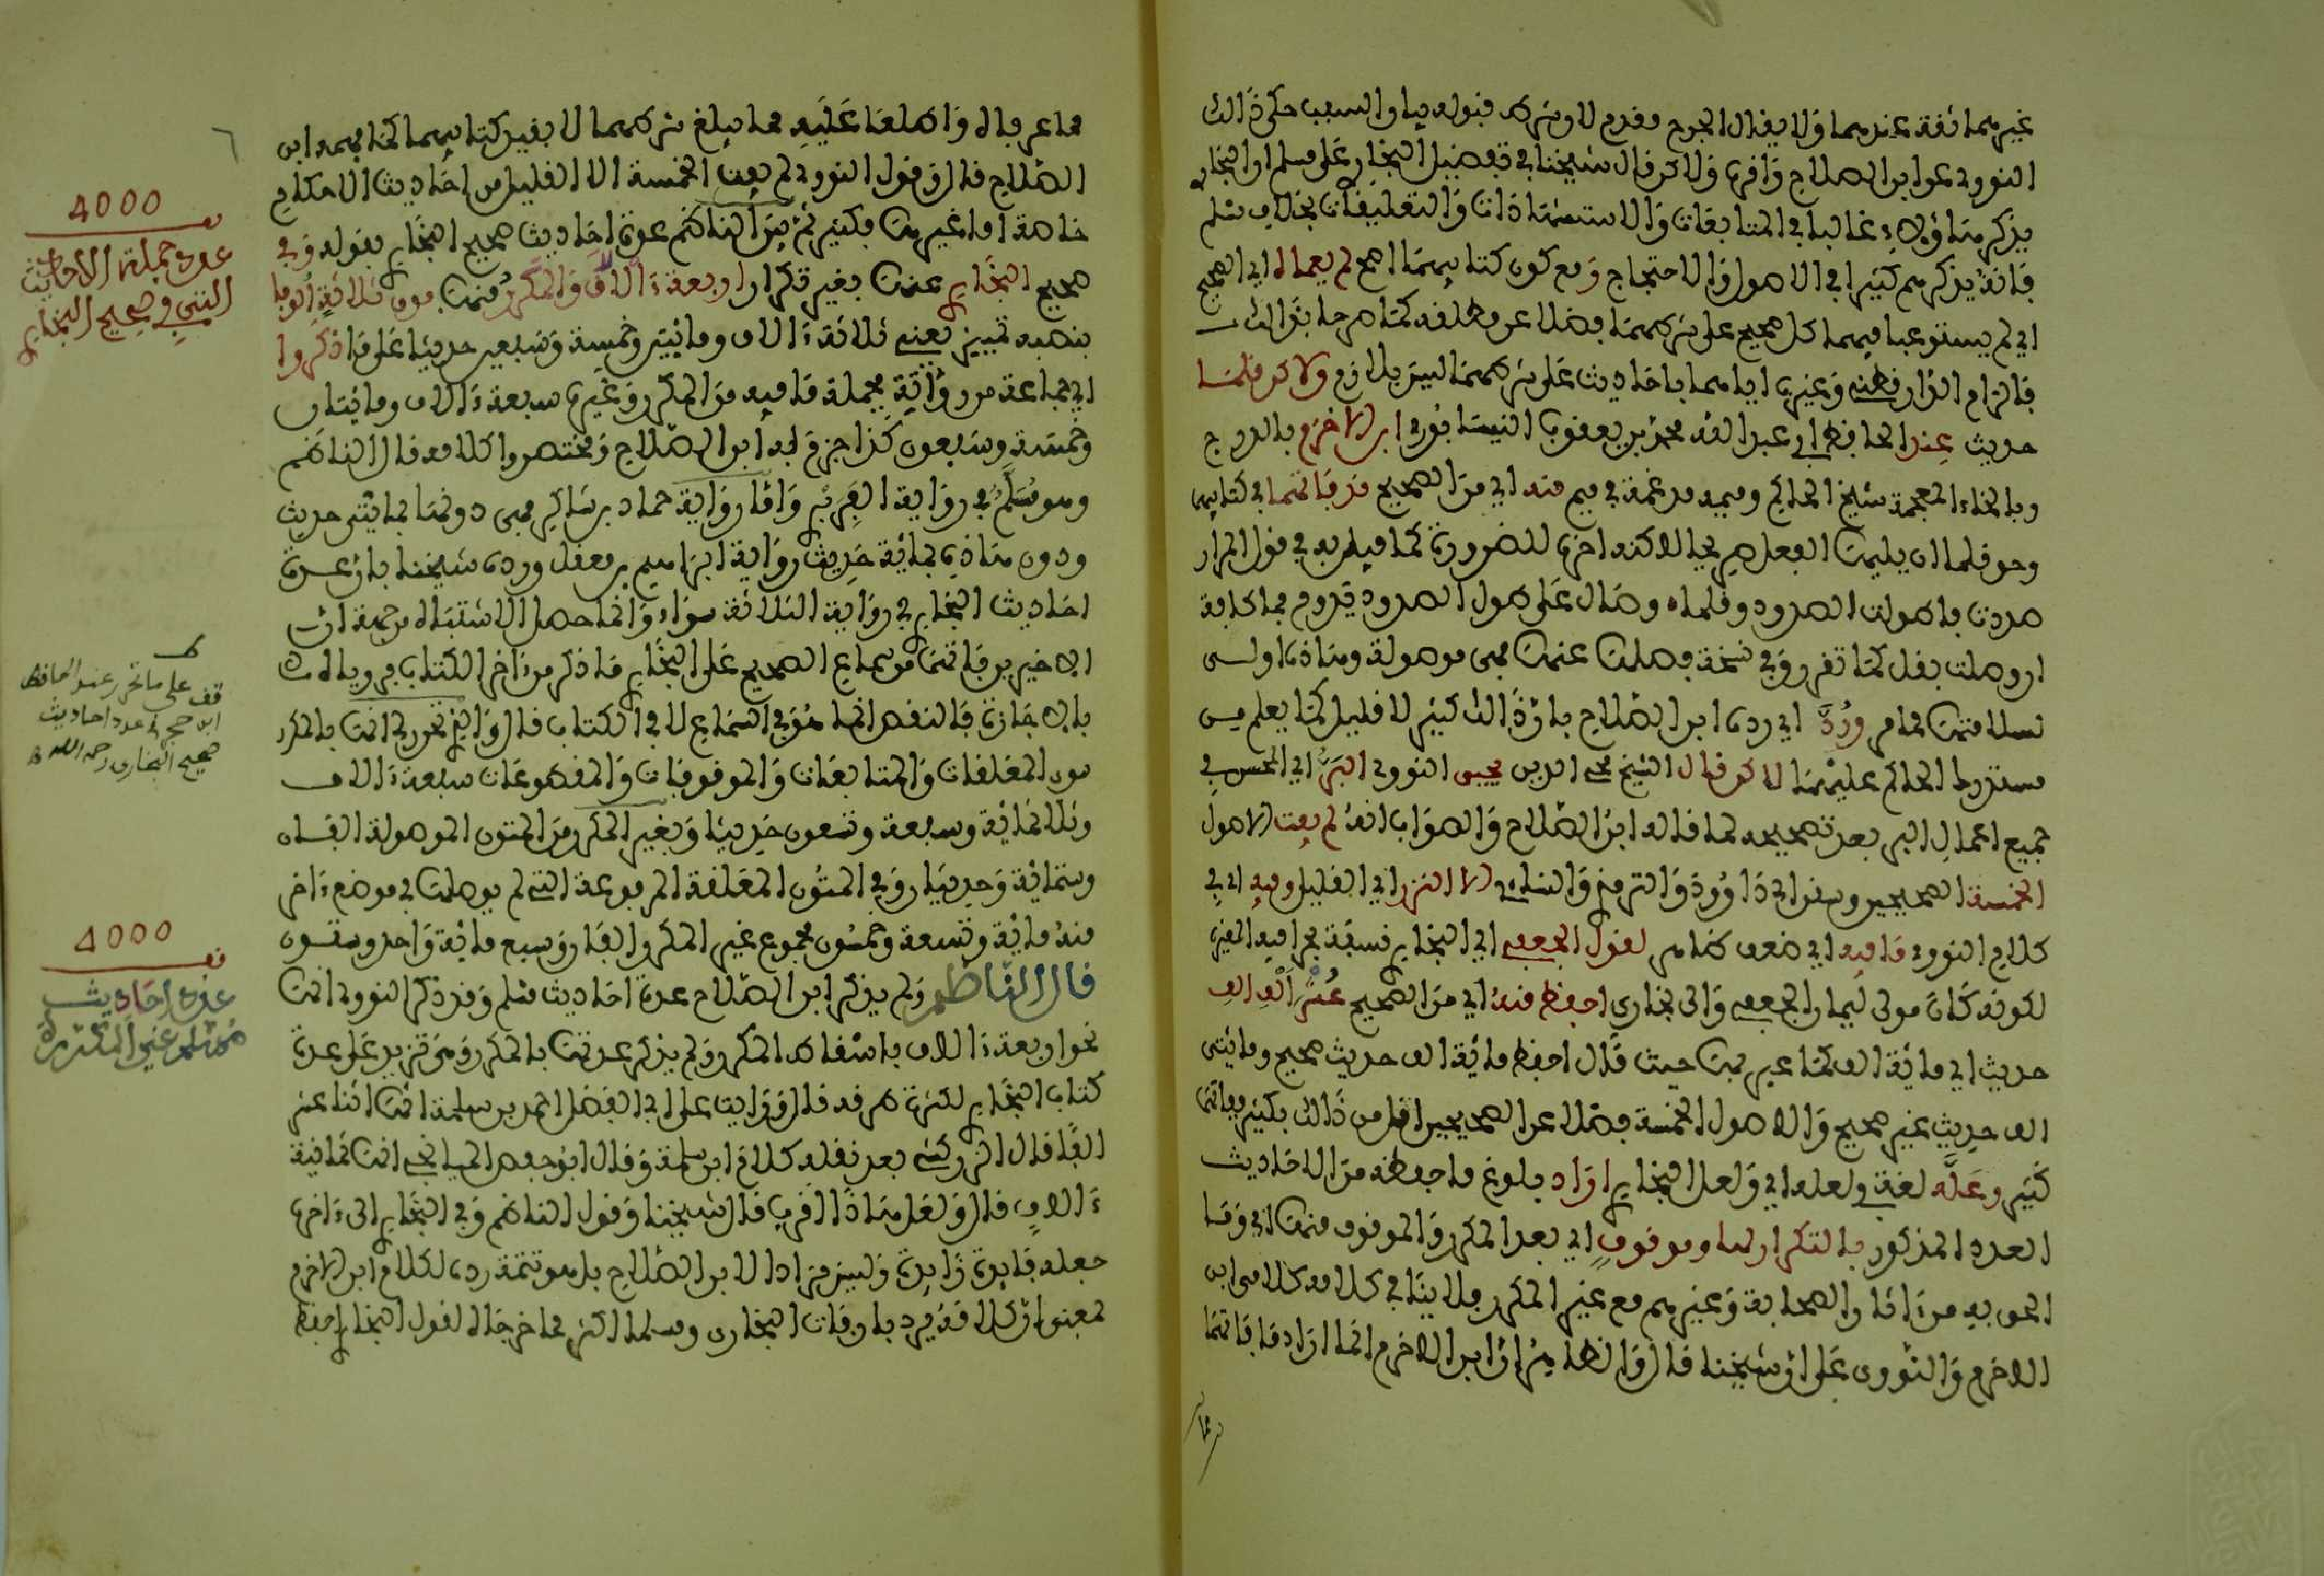 غيرهما ثقة عندهما ولا يقال الجرح مقدم لان شرط قبوله بيان السبب حكى ذالك
النووي عن ابن الصلاح واقره ولاكن قال شيخنا في تفضيل البخاري على مسلم ان البخاري
يذكر هاؤلاء غالبا في المتابعات والاستشهادات والتعليقات بخلاف مسلم
فانه يذكرهم كثيرا في الاصول والاحتجاج ومع كون كتابيهما اصح لم يعماه اي الصحيح
اي لم يستوعبا فيهما كل صحيح على شرطهما فضلا عن مطلقه كما صرحا بذالك
فالزام الدارقطني وغيره اياهما باحاديث على شرطهما ليس بلازم ولاكن قلما
حديث عند الحافظ ابي عبد الله محمد بن يعقوب النيسابوري ابن الاخرم بالدرج
وبالخاء المعجمة شيخ الحاكم وميمه مدغمة في ميم منه اي من الصحيح قد فاتهما في كتابيهما
وحق قلما ان يليها الفعل صريحا لاكنه اخره للضرورة كما قيل به في قول المرار
صددت فاطولت الصدود وقلما وصال على طول الصدود يدوم فما كافة
او وصلت بفعل كما تقرر وفي نسخة فصلت عنها فهي موصولة وهاذه اولى
لسلامتها مما مر ورد اي رده ابن الصلاح بان ذالك كثير لا قليل كما يعلم من
مستدرك الحاكم عليهما لاكن قال الشيخ محي الدين يحيى النووي البر اي المحسن في
جميع اعمال البر بعد تصحيحه لما قاله ابن الصلاح والصواب انه لم يفت الاصول
الخمسة الصحيحين وسنن ابي داوود والترمذي والنساءي الا النزر اي القليل وفيه اي في
كلام النووي ما فيه اي ضعف ظاهر لقول الجعفي اي البخاري نسبة لجد ابيه المغيرة
لكونه كان مولى ليمان الجعفي والى بخارى احفظ منه اي من الصحيح عشر الف الف
حديث اي مائة الف كما عبر بها حيث قال احفظ مائة الف حديث صحيح ومايتي
الف حديث غير صحيح والاصول الخمسة فضلا عن الصحيحين اقل من ذالك بكثير ففاتهما
كثير وعله لغة في لعله اي ولعل البخاري اراد بلوغ ما حفظه من الاحاديث
العدد المذكور بالتكرار لها وموقوف اي بعد المكرر والموقوف منها اي وما
الحق به من ءاثار الصحابة وغيرهم مع غير المكرر فلا ينافي كلامه كلامي ابن
الاخرم والنووي على ان شيخنا قال والظاهر ان ابن الاخرم انما اراد ما فاتهما
مما
مما عرفاه واطلعا عليه مما يبلغ شرطهما لا بقيد كتابيهما كما فهمه ابن
الصلاح قال وقول النووي لم يفت الخمسة الا القليل من احاديث الاحكام
خاصة اما غيرها فكثير ثم بين الناظم عدة احاديث صحيح البخاري بقوله وفي
صحيح البخاري عنها بغير تكرار اربعة ءالاف والمكرر منها فوق ثلاثة الوفا
بنصبه تمييز يعني ثلاثة ءالاف ومائتين وخمسة وسبعين حديثا على ما ذكروا
اي جماعة من رواته فجملة ما فيه من المكرر وغيره سبعة ءالاف ومائتان
وخمسة وسبعون كذا جزم به ابن الصلاح ومختصروا كلامه قال الناظم
وهو مسلم في رواية الفربري واما رواية حماد بن شاكر فهي دونها بمائتي حديث
ودون هاذه بمائة حديث رواية ابراهيم بن معقل ورده شيخنا بان عدة
احاديث البخاري في رواية الثلاثة سواء وانما حصل الاشتباه من جهة ان
الاخيرين فاتهما من سماع الصحيح على البخاري ما ذكر من ءاخر الكتاب فروياه
بالاجازة فالنقص انما هو في السماع لا في الكتاب قال والذي تحرر لي انها بالمكرر
سوى المعلقات والمتابعات والموقوفات والمقطوعات سبعة ءالاف
وثلاثمائة وسبعة وتسعون حديثا وبغير المكرر من المتون الموصولة الفان
وستمائة وحديثان وفي المتون المعلقة المرفوعة التي لم يوصلها في موضع ءاخر
منه مائة وتسعة وخمسون فمجموع غير المكرر الفان وسبع مائة واحد وستون
قال الناظم ولم يذكر ابن الصلاح عدة احاديث مسلم وقد ذكر النووي انها
نحو اربعة ءالاف باسقاط المكرر ولم يذكر عدتها بالمكرر وهي تزيد على عدة
كتاب البخاري لكثرة طرقه قال ورايت عن ابي الفضل احمد بن سلمة انها اثنا عشر
الفا قال الزركشي بعد نقله كلام ابن سلمة وقال ابو حفص الميانجي انها ثمانية
ءالاف قال ولعل هاذا اقرب قال شيخنا وقول الناظم وفي البخاري الى ءاخره
جعله فائدة زائدة وليس مرادا لابن الصلاح بل هو تتمة رده لكلام ابن الاخرم
بمعنى ان كلامه يرد بان فات البخاري ومسلما اكثر مما خرجاه لقول البخاري احفظ
٦
4000
قف
عدد جملة الاحاديث
التي في صحيح البخاري
قف على ما تحرر عند الحافظ
ابن حجر في عدد احاديث
صحيح البخاري رحمه الله
4000
قف
عدد احاديث
مسلم غير المكررة